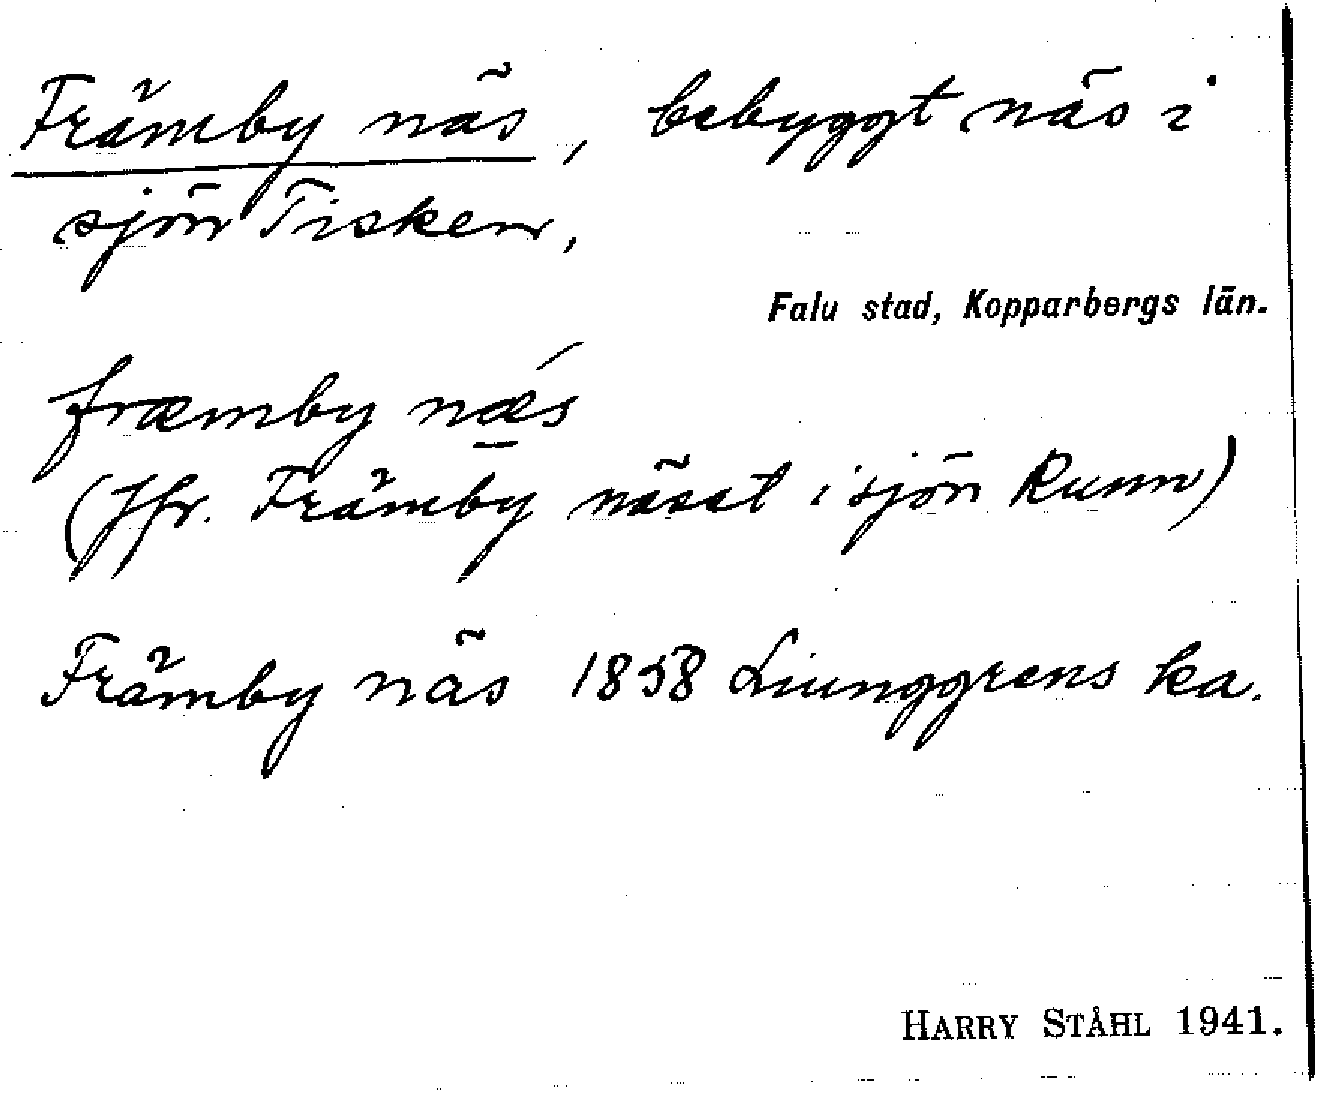 Främby näs, bebyggt näs i
sjön Tisken,
Falu stad, Kopparbergs län.
fræmby nǽ̱s
(Jfr. Främby näset i sjön Runn)
Främby näs 1858 Liunggrens ka.
HARRY STÅHL 1941.